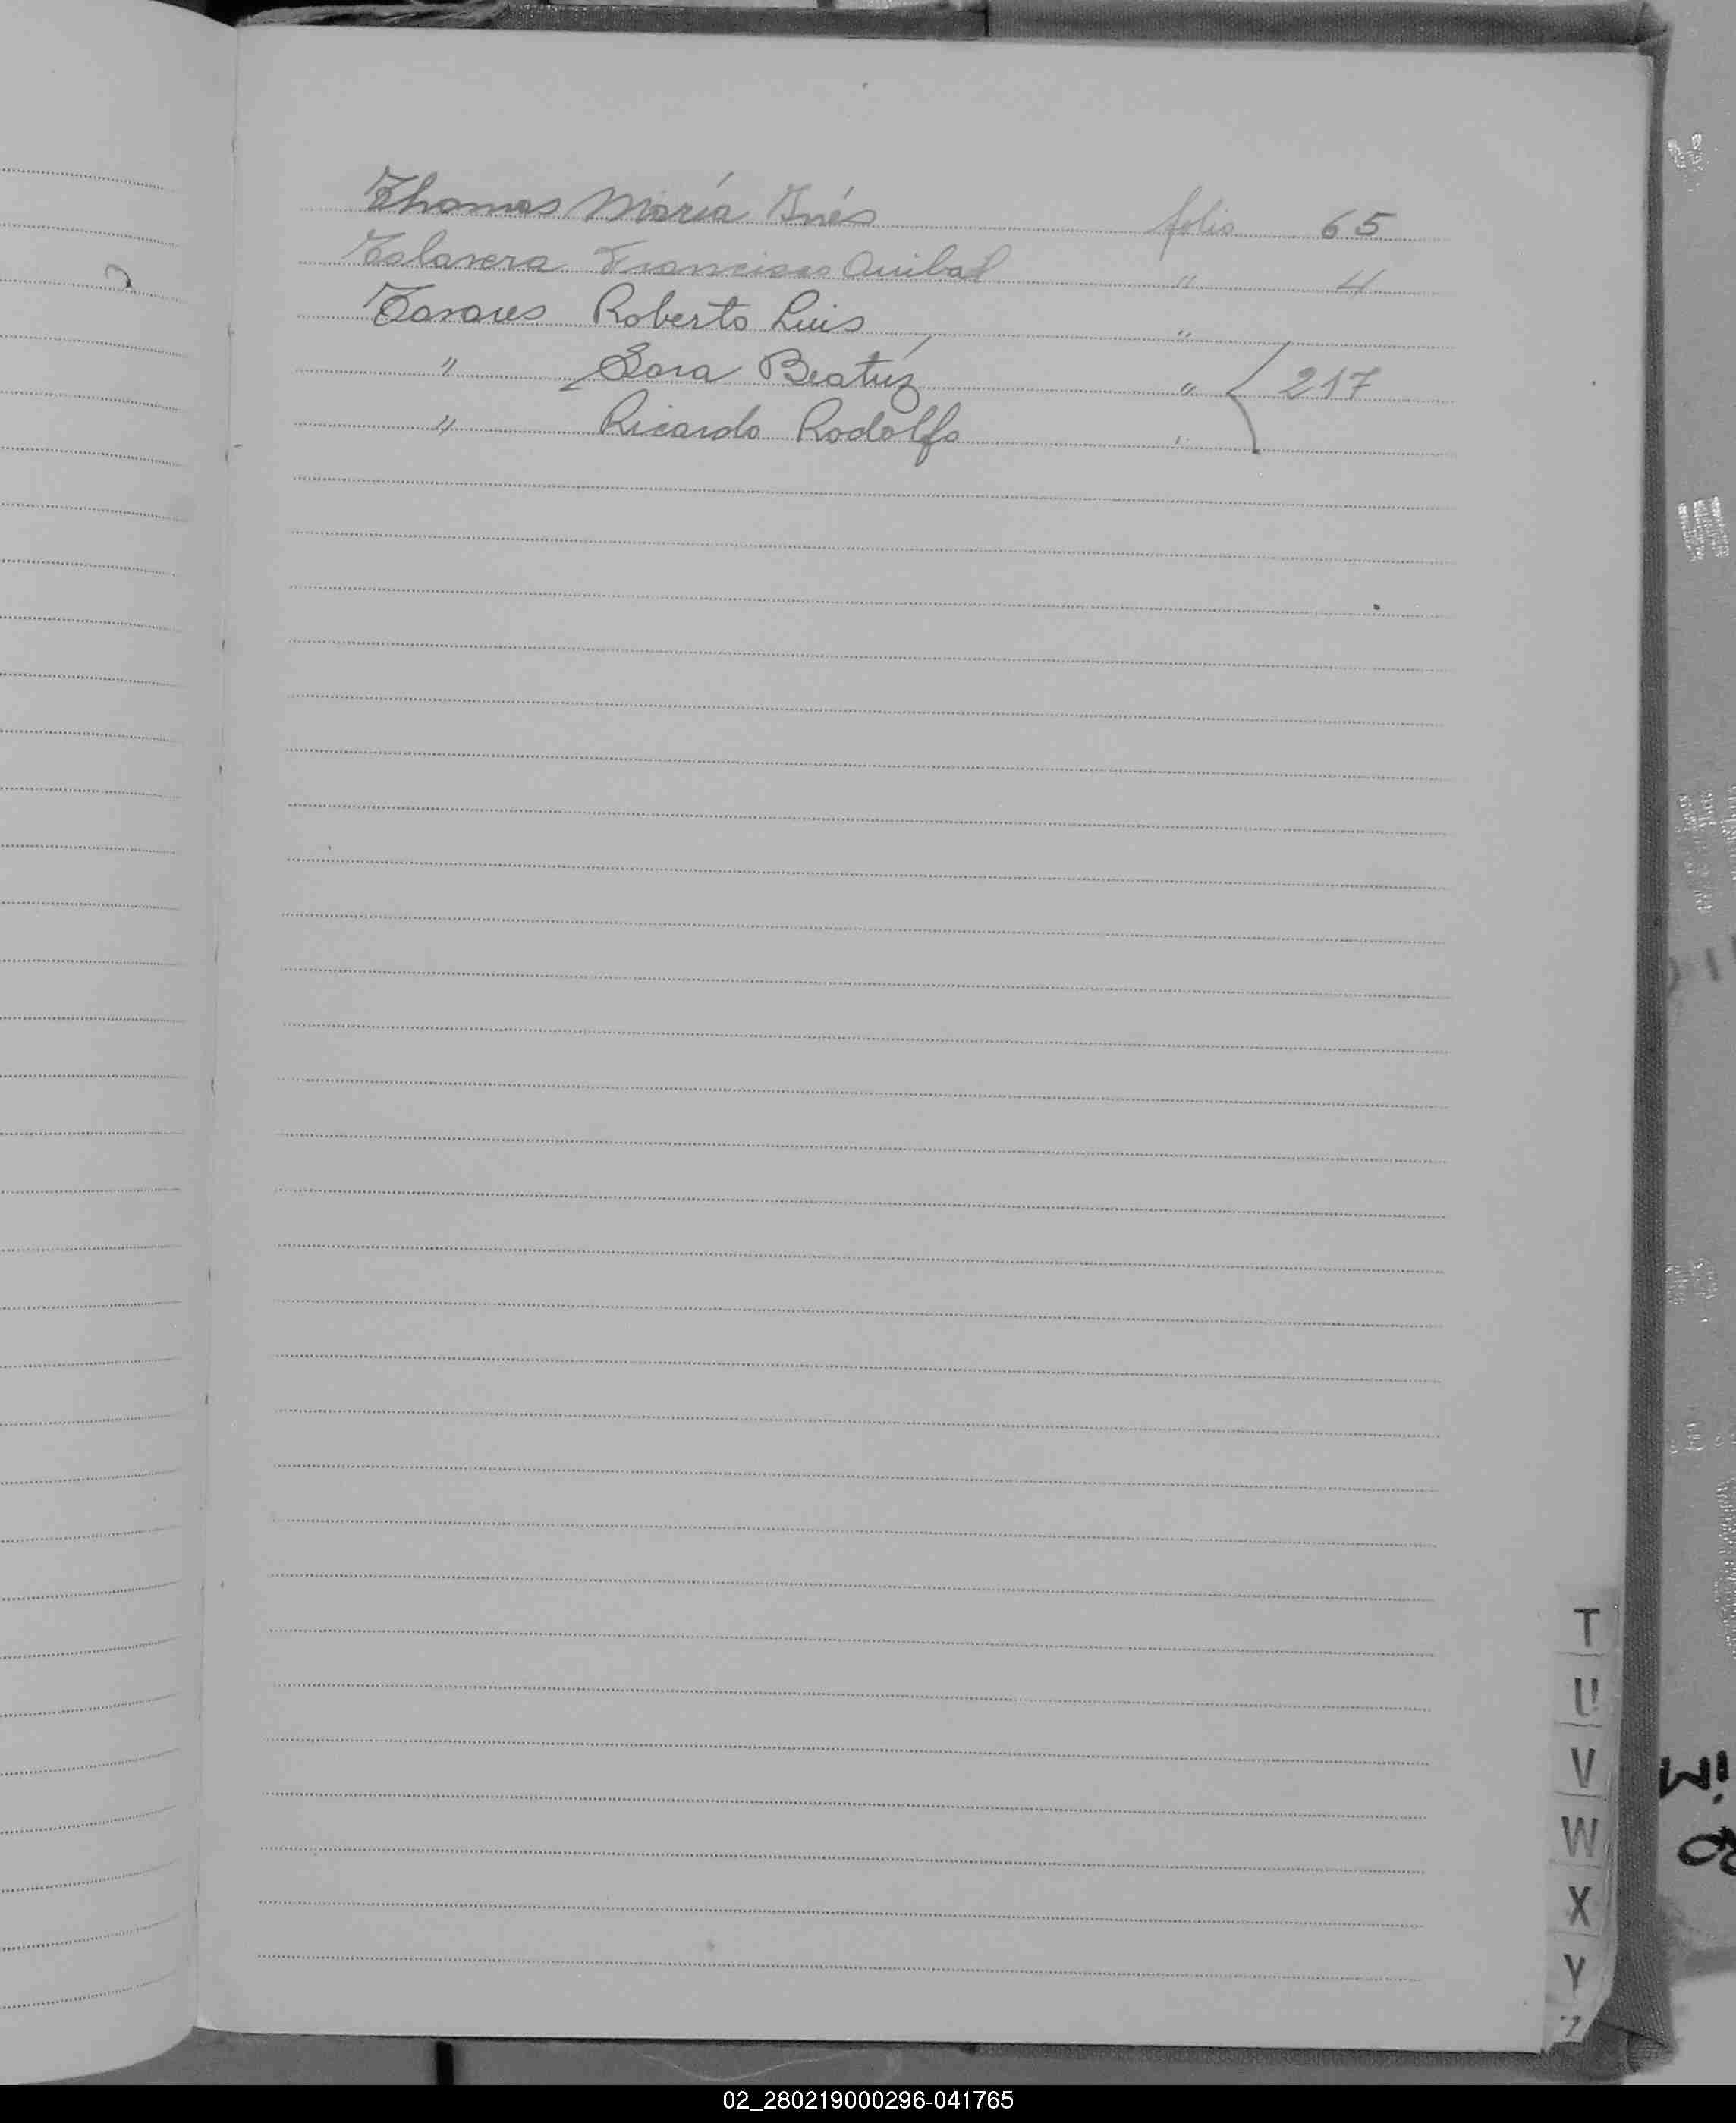 Thomas María Inés folio 65
Talavera Francisco Anibal " 4
Tavares Roberto Luis "
" Sara Beatríz " 217
" Ricardo Rodolfo "
T
U
V
W
X
Y
Z
02_280219000296-041765